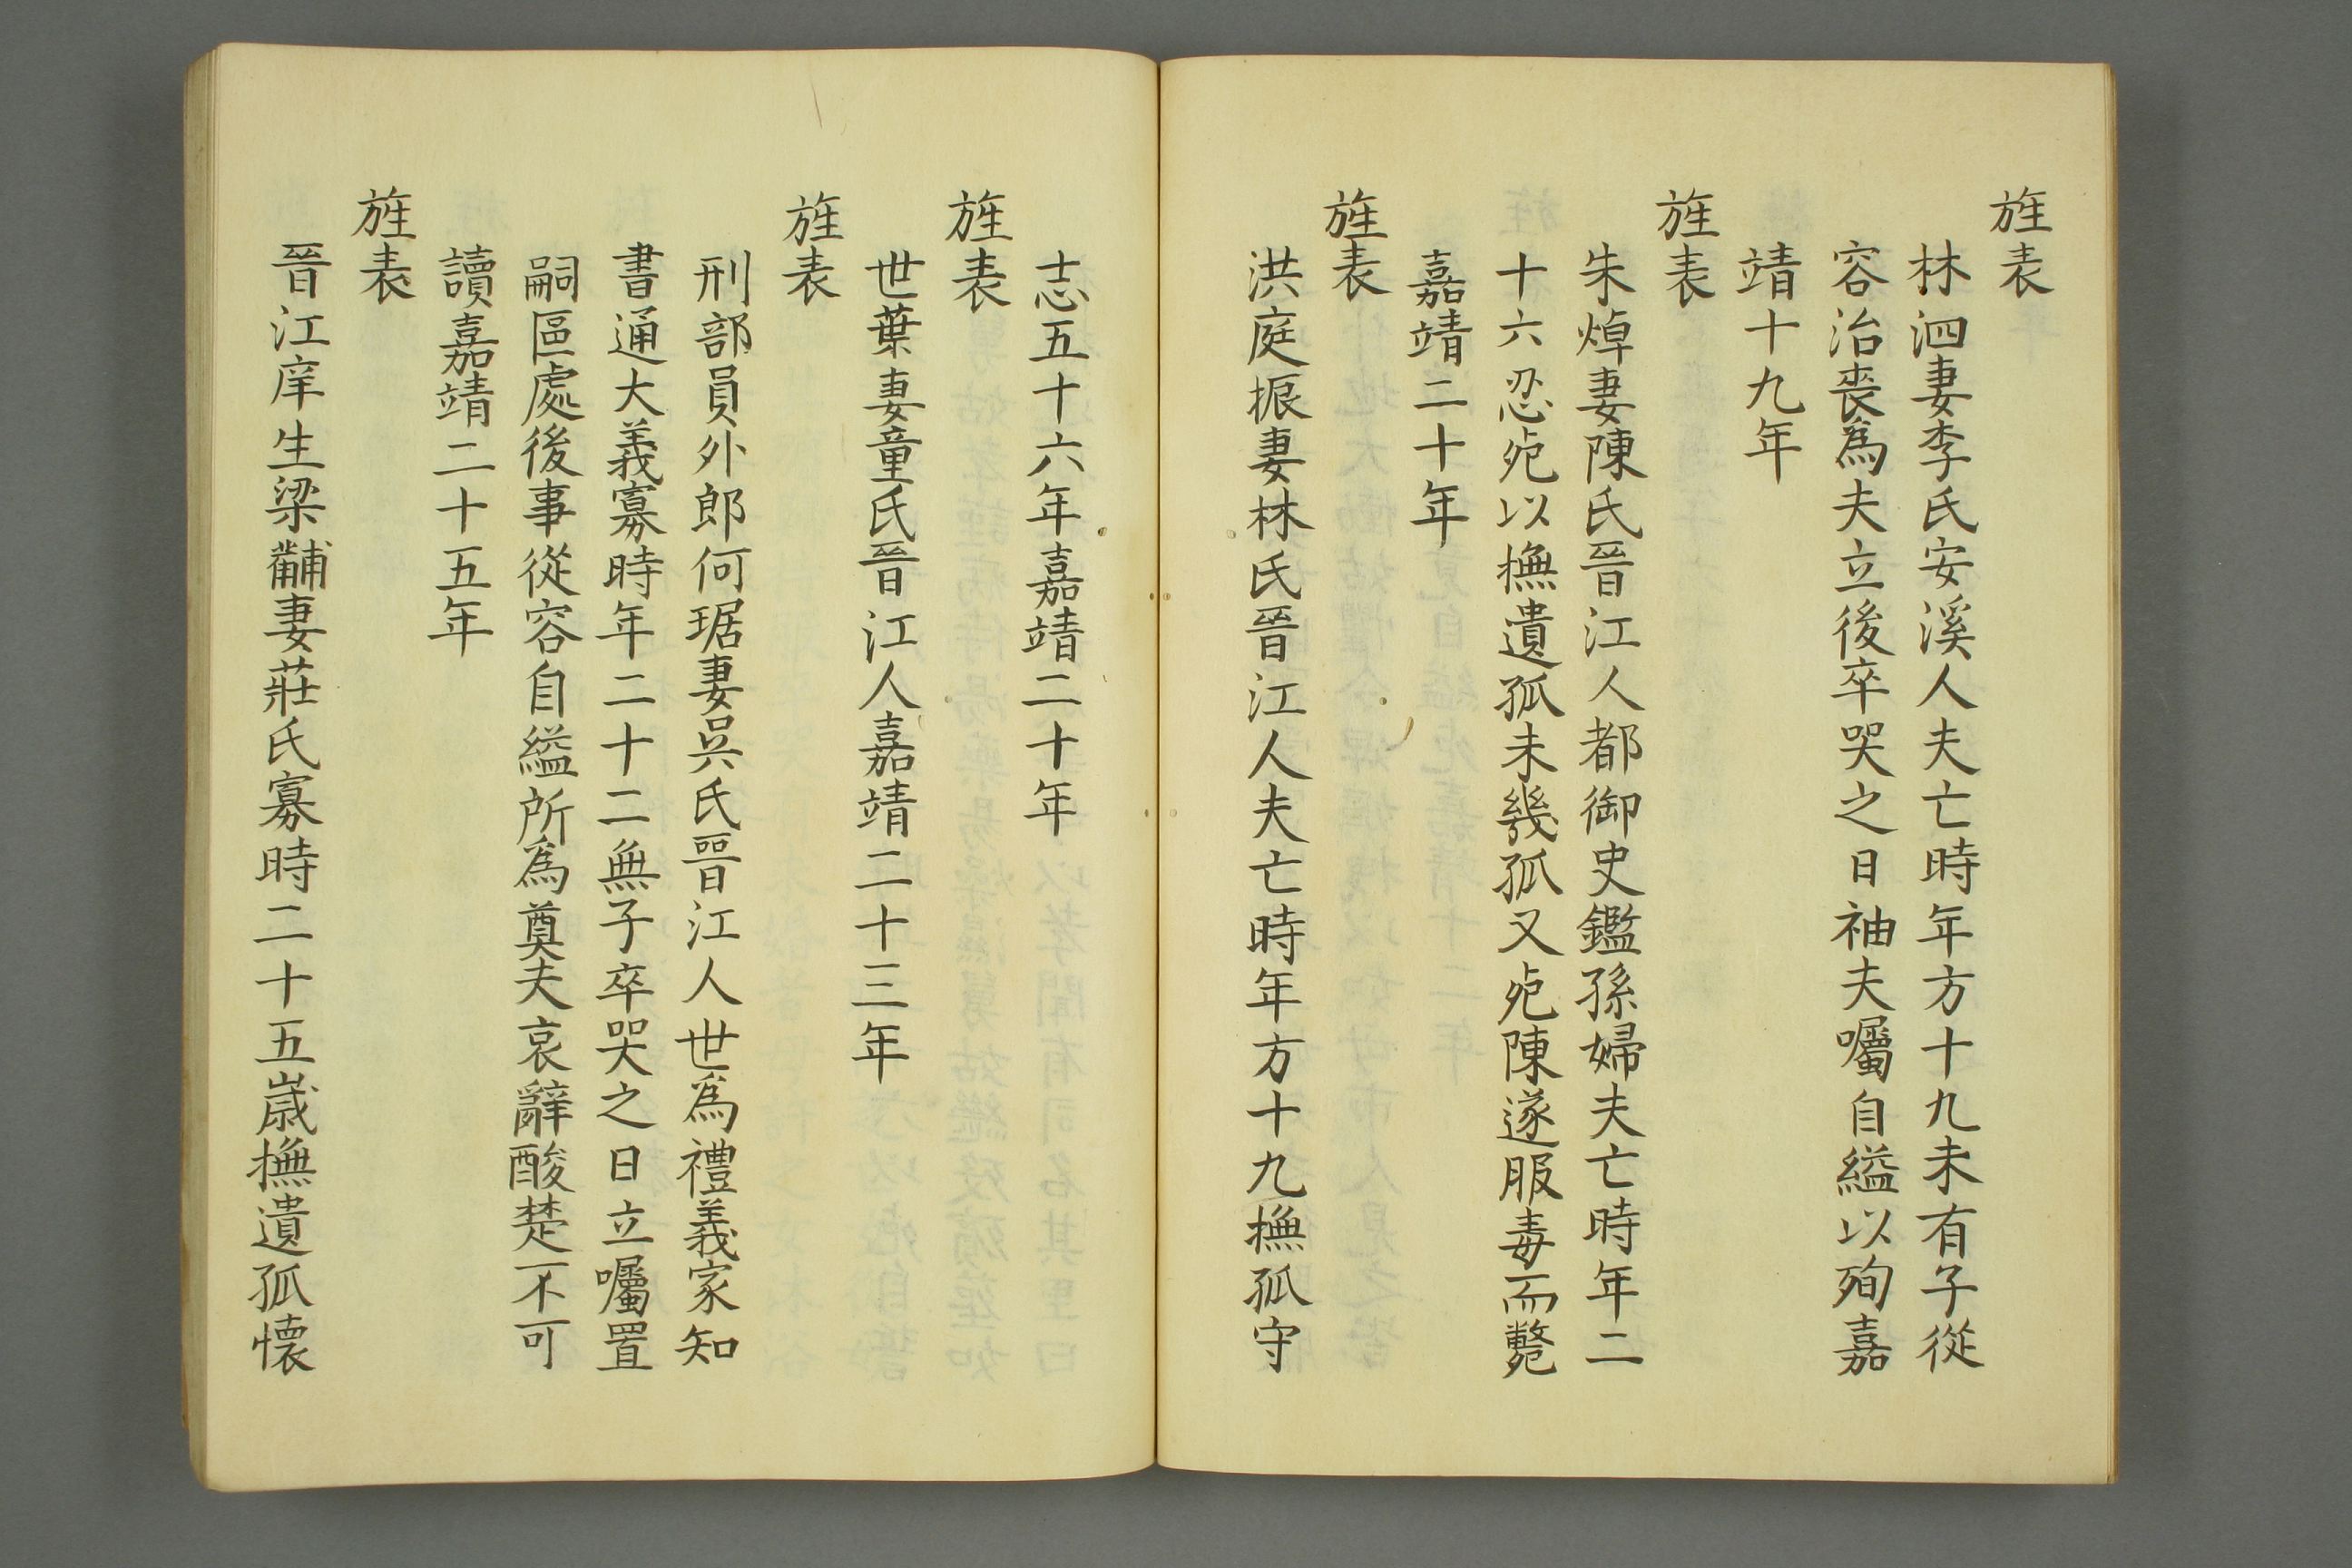 旌表
林泗妻李氏安溪人夫亡時年方十九未有子從
容治喪為夫立後卒哭之日袖夫囑自縊以殉嘉
靖十九年
旌表
朱焯妻陳氏晉江人都御史鑑孫婦夫亡時年二
十六忍死以撫遺孤未幾孤又死陳遂服毒而斃
嘉靖二十年
旌表
洪庭振妻林氏晉江人夫亡時年方十九撫孤守
志五十六年嘉靖二十年
旌表
世葉妻童氏晉江人嘉靖二十三年
旌表
刑部員外郎何琚妻吳氏晉江人世為禮義家知
書通大義寡時年二十二無子卒哭之日立囑置
嗣區處後事從容自縊所為奠夫哀辭酸楚不可
讀嘉靖二十五年
旌表
晉江庠生梁黼妻莊氏寡時二十五歲撫遺孤懷